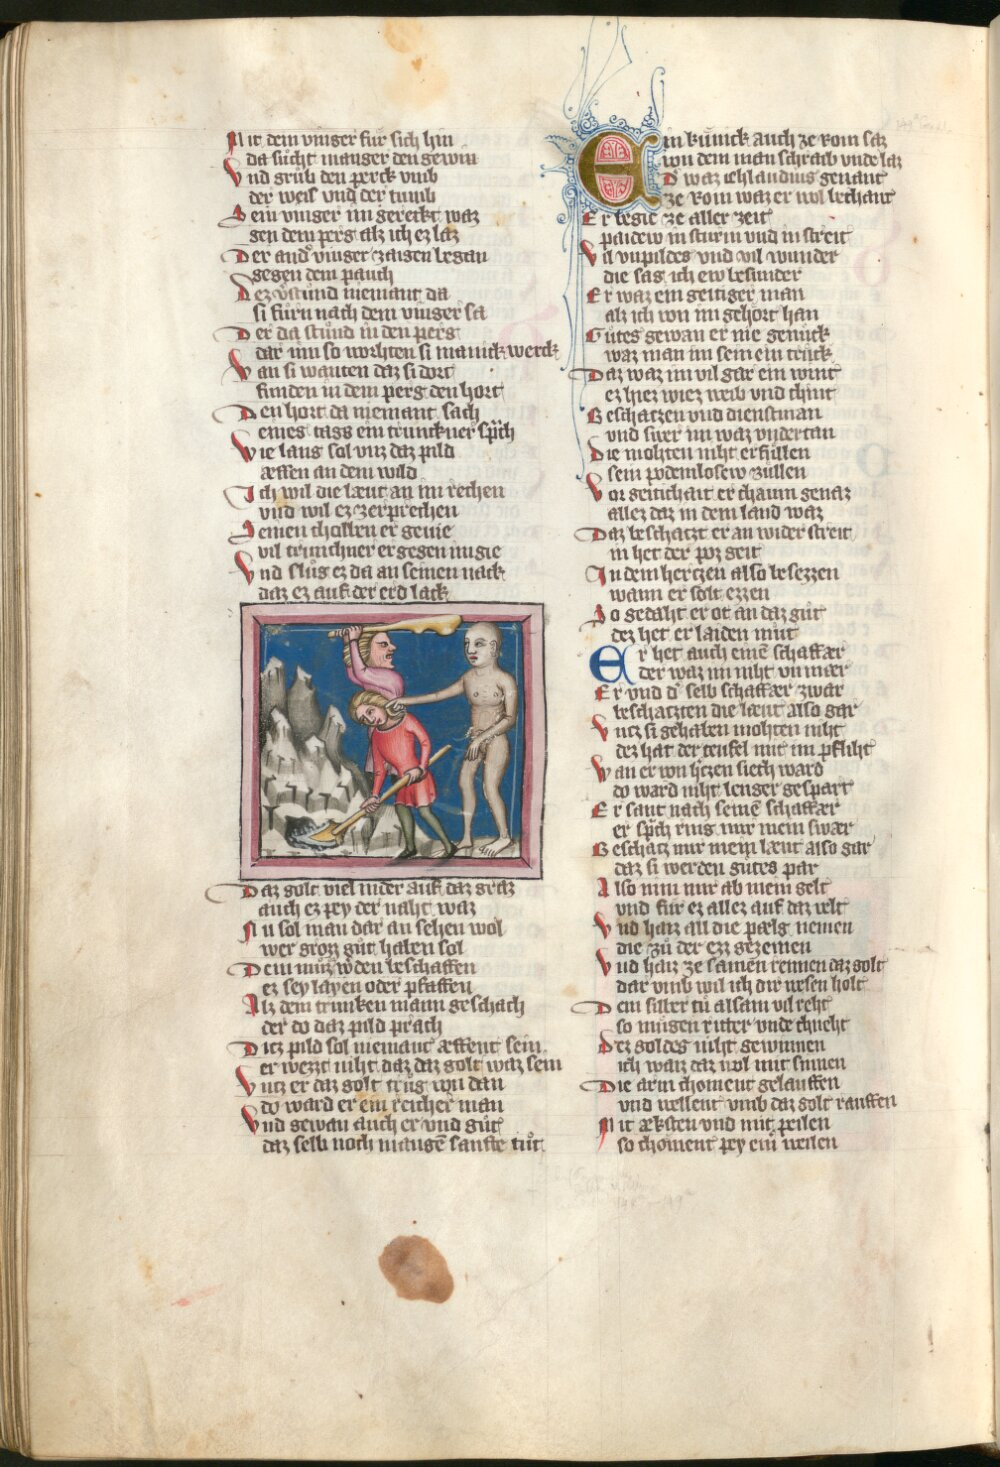 Mit dem vinger für sich hin
da sücht manger den gewin
Vnd grub den perck vmb
der weis vnd der tumb
Sein vinger im gereckt waz
gen dem perg alz ich ez laz
Der and vinger zaigen began
gegen dem pauch
Dez vstund niemant da
si fürn nach dem vinger sa
Der da stünd in den perg
dar inn so worhten si manick werck
Wan si wanten daz si dort
funden in dem perg den hort
Den hort da niemant sach
eines tags ein trunckner sprch
Wie lang sol vnz daz pild
æffen an dem wild
Ich wil die læut an im rechen
vnd wil ez zerprechen
Seinen cholben er gevie
vil trunchner er gegen im gie
Vnd slug ez da an seinen nack
daz ez auf der erd lack
Daz golt viel nider auf daz graz
auch ez pey der naht waz
Nu sol man dar an sehen wol
wer grozz güt haben sol
Dem muz wden beschaffen
ez sey layen oder pfaffen
Alz dem trunken mann geschach
der do daz pild prach
Ditz pild sol niemant æffent sein
er wezzt niht daz daz golt waz sein
Vntz er daz golt trug von dan
do ward er ein reicher man
Vnd gewan auch er vnd güt
daz selb noch mangē sanfte tüt
Ein künick auch ze rom saz
von dem man schraib vnde laz
D waz chlaudius genant
ze rom waz er wol bechant
Er begie ze aller zeit
paidew in sturm vnd in streit
Vil vnpildes vnd vil wunder
die sag ich ew besunder
Er waz ein geitiger man
alz ich von im gehort han
Gütes gewan er nie genuck
waz man im sein ein truck
Daz waz im vil gar ein wint
er hiez wiez weib vnd chint
Beschatzen vnd dienstman
vnd swer im waz vndertan
Die mohten niht erfüllen
sein podemlosew züllen
Vor geitichait er chaum genaz
allez daz in dem land waz
Daz beschatzt er an wider streit
in het der poz geit
In dem hertzen also besezzen
wann er solt ezzen
So gedaht er ot an daz güt
dez het er laiden müt
Er het auch einē schaffær
der waz im niht vnmær
Er vnd d selb schaffær zwar
beschatzten die læut also gar
Vntz si gehaben mohten niht
dez hat der teufel mit im pfliht
Wan er von hitzen siech ward
do ward niht lenger gespart
Er sant nach seinē schaffær
er sprch ring mir mein swær
Beschatz mir mein læut also gar
daz si werden gütes par
Also nim mir ab mein gelt
vnd für ez allez auf daz velt
Vnd haiz all die pælg nemen
die zü der ezz gezemen
Vnd haiz ze samen rennen daz golt
dar vmb wil ich dir wesen holt
Dem silber tü alsam vil reht
so mügen ritter vnde chneht
Dez goldes niht gewinnen
ich waiz daz wol mit sinnen
Die arm choment gelauffen
vnd wellent vmb daz golt rauffen
Mit æksten vnd mit peilen
so choment pey ein weilen